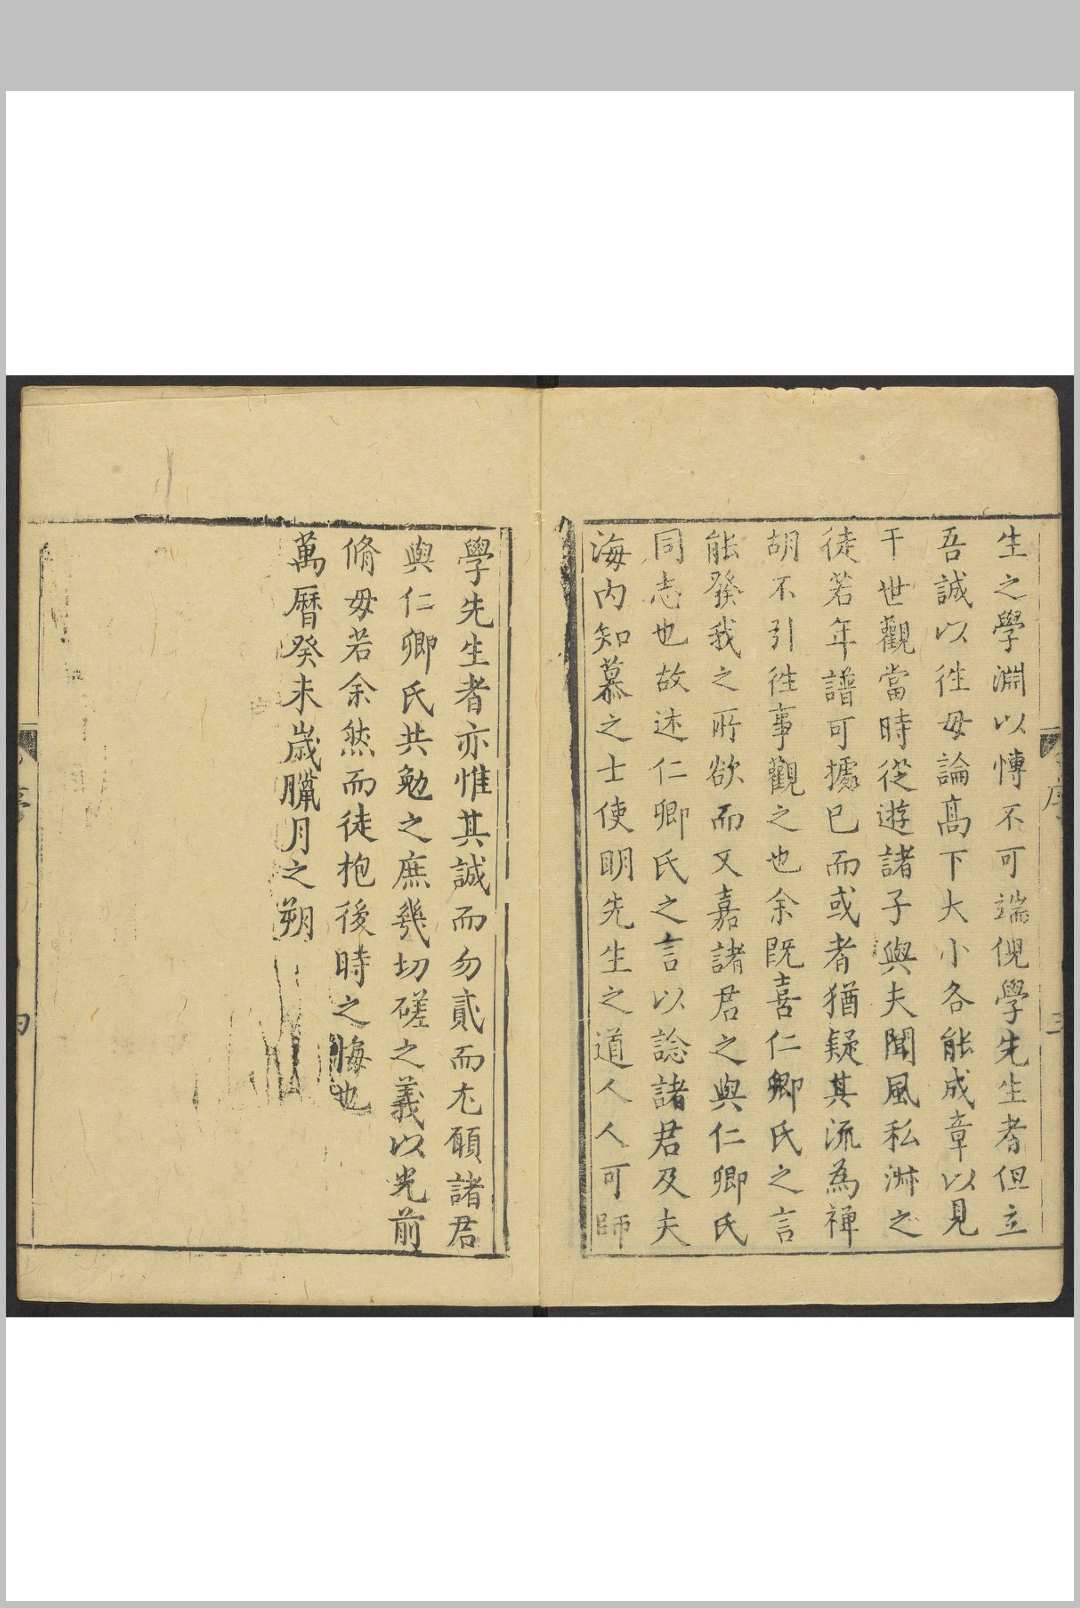 生之學淵以慱不可端倪學先生者但立
吾誠以徃毋論髙下大小各能成章以見
于世觀當時從遊諸子與夫聞風私淋之
徒若年譜可據已而或者猶疑其流為禪
胡不引徃事觀之也余既喜仁卿氏之言
能發我之所欲而又嘉諸君之與仁卿氏
同志也故述仁卿氏之言以諗諸君及夫
海内知慕之士使明先生之道人人可師
學先生者亦惟其誠而勿貳而尤願諸君
與仁卿氏共勉之庶幾切磋之義以光前
脩毋若余然而徒抱後時之悔也
萬曆癸未歲臘月之朔